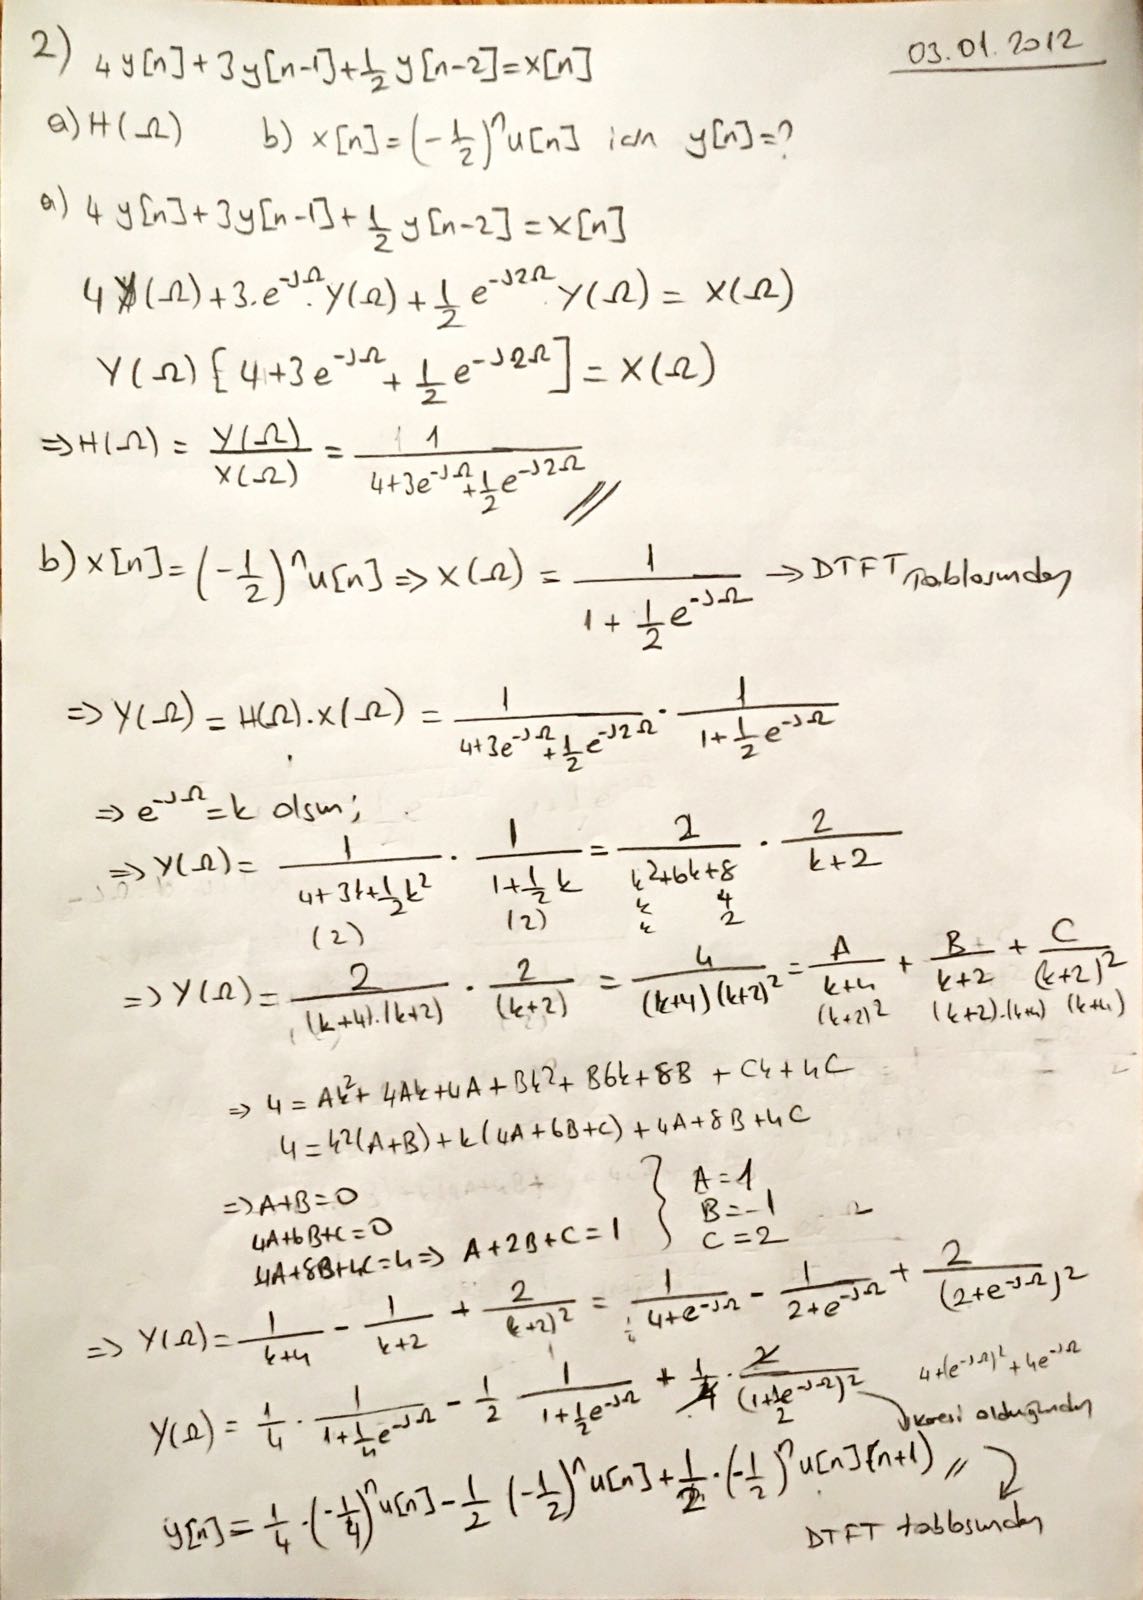 2) 4y[n]+3y[n-1]+1/2 y[n-2]=x[n] 03.01.2012
a) H(Ω) b) x[n]=(-1/2)^n u[n] için y[n]=?
a) 4y[n]+3y[n-1]+1/2 y[n-2]=x[n]
4Y(Ω)+3.e^-jΩ.Y(Ω)+1/2 e^-j2Ω Y(Ω) = X(Ω)
Y(Ω)[4+3e^-jΩ+1/2 e^-j2Ω] = X(Ω)
⇒H(Ω) = Y(Ω)/X(Ω) = 1/(4+3e^-jΩ+1/2 e^-j2Ω) //
b) x[n]=(-1/2)^n u[n] ⇒ X(Ω) = 1/(1+1/2 e^-jΩ) → DTFT Tablosundan
⇒ Y(Ω) = H(Ω).X(Ω) = 1/(4+3e^-jΩ+1/2 e^-j2Ω) . 1/(1+1/2 e^-jΩ)
⇒ e^-jΩ=k olsun;
⇒ Y(Ω) = 1/(4+3k+1/2 k^2) . 1/(1+1/2 k) = 2/(k^2+6k+8) . 2/(k+2)
(2) (2) k 4
k 2
⇒ Y(Ω) = 2/((k+4).(k+2)) . 2/(k+2) = 4/((k+4)(k+2)^2) = A/(k+4) + B/(k+2) + C/(k+2)^2
(k+2)^2 (k+2).(k+4) (k+4)
⇒ 4 = Ak^2+4Ak+4A+Bk^2+B6k+8B+Ck+4C
4=k^2(A+B)+k(4A+6B+C)+4A+8B+4C
⇒A+B=0 } A=1
4A+6B+C=0 B=-1
4A+8B+4C=4⇒ A+2B+C=1 C=2
⇒ Y(Ω)= 1/(k+4) - 1/(k+2) + 2/(k+2)^2 = 1/(4+e^-jΩ) - 1/(2+e^-jΩ) + 2/(2+e^-jΩ)^2
4+(e^-jΩ)^2+4e^-jΩ
Y(Ω) = 1/4 . 1/(1+1/4 e^-jΩ) - 1/2 1/(1+1/2 e^-jΩ) + 1/4 . 2/(1+1/2 e^-jΩ)^2 → karesi olduğundan
y[n] = 1/4 .(-1/4)^n u[n] - 1/2 (-1/2)^n u[n] + 1/2 .(-1/2)^n u[n](n+1) //
DTFT tablosundan